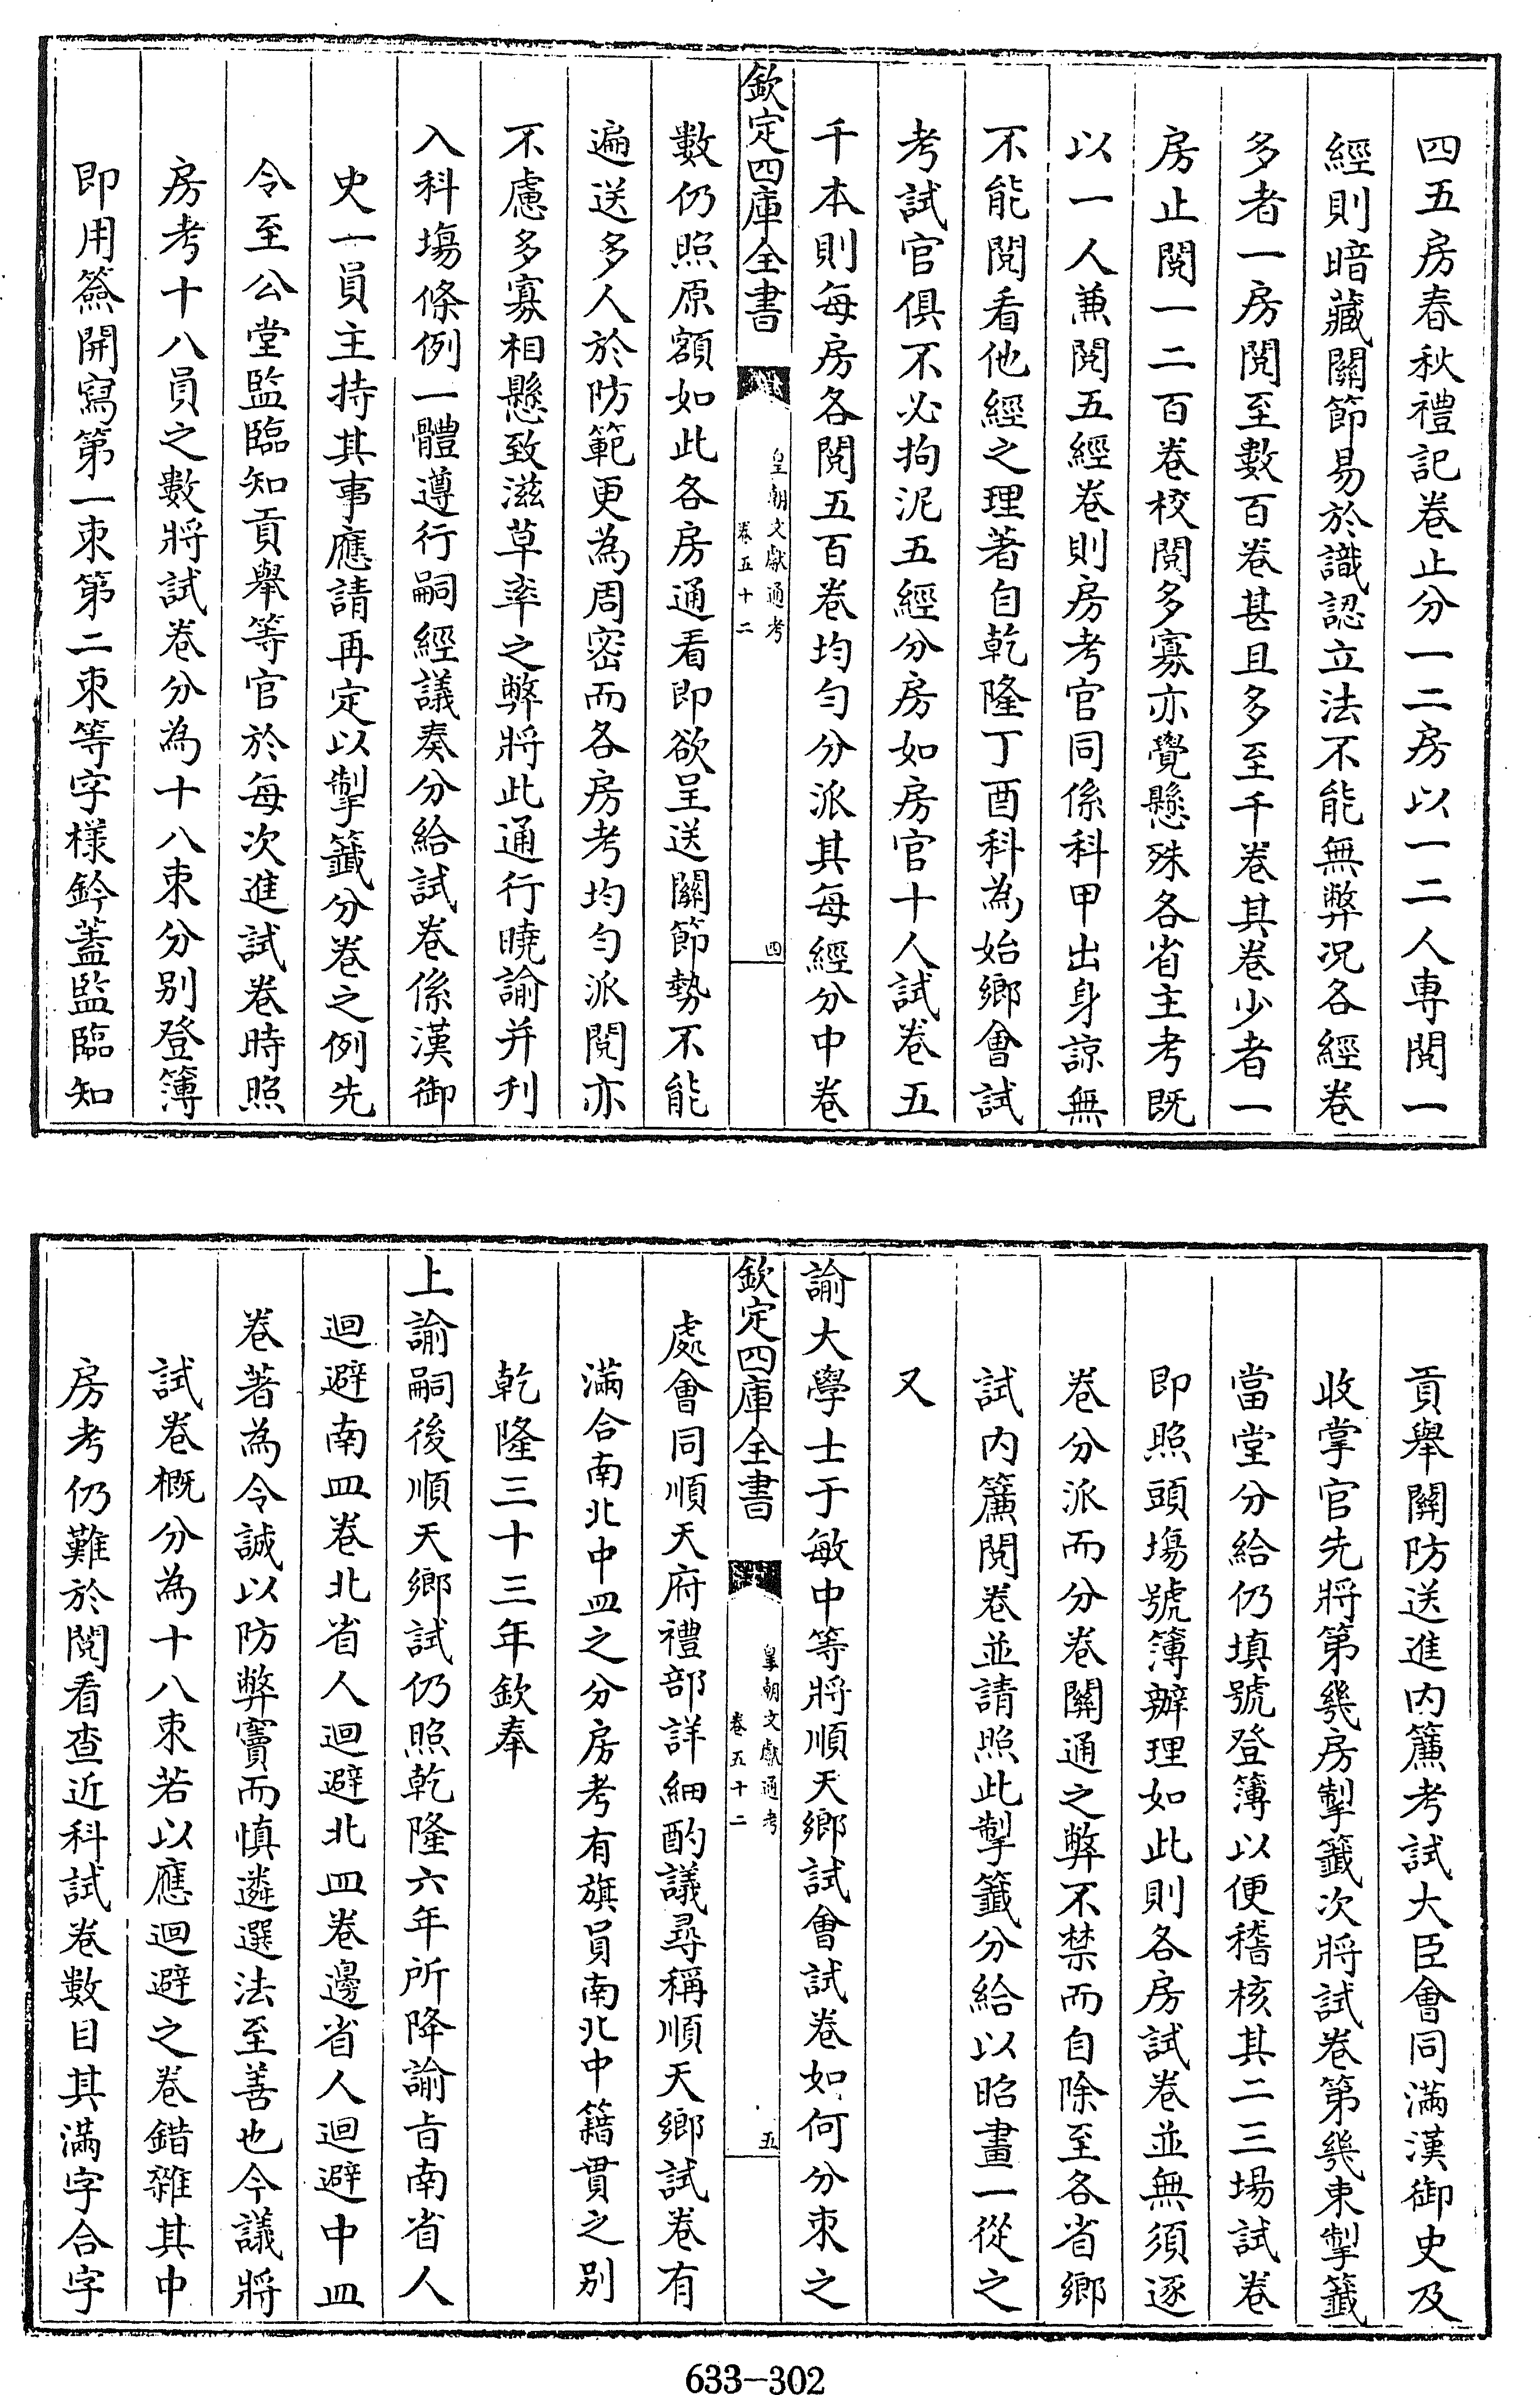 四五房春秋禮記卷止分一二房以一二人專閱一
經則暗藏關節易於識認立法不能無弊况各經卷
多者一房閱至數百卷甚且多至千卷其卷少者一
房止閱一二百卷校閱多寡亦覺懸殊各省主考既
以一人兼閱五經卷則房考官同係科甲出身諒無
不能閱看他經之理著自乾隆丁酉科為始鄉會試
考試官俱不必拘泥五經分房如房官十人試卷五
千本則每房各閱五百卷均勻分派其每經分中卷
欽定四庫全書
皇朝文獻通考
卷五十二
四
數仍照原額如此各房通看即欲呈送關節勢不能
遍送多人於防範更為周密而各房考均勻派閱亦
不慮多寡相懸致滋草率之弊將此通行曉諭并刋
入科塲條例一體遵行嗣經議奏分給試卷係漢御
史一員主持其事應請再定以掣籤分卷之例先
令至公堂監臨知貢舉等官於每次進試卷時照
房考十八員之數將試卷分為十八束分别登簿
即用簽開寫第一束第二束等字樣鈐蓋監臨知
貢舉關防送進内簾考試大臣會同滿漢御史及
收掌官先將第幾房掣籤次將試卷第幾束掣籤
當堂分給仍填號登簿以便稽核其二三場試卷
即照頭塲號簿辦理如此則各房試卷並無須逐
卷分派而分卷關通之弊不禁而自除至各省鄉
試内簾閱卷並請照此掣籤分給以昭畫一從之
又
諭大學士于敏中等將順天鄉試會試卷如何分束之
欽定四庫全書
皇朝文獻通考
卷五十二
五
處會同順天府禮部詳細酌議尋稱順天鄉試卷有
滿合南北中皿之分房考有旗員南北中籍貫之别
乾隆三十三年欽奉
上諭嗣後順天鄉試仍照乾隆六年所降諭旨南省人
迴避南皿卷北省人迴避北皿卷邊省人迴避中皿
卷著為令誠以防弊竇而慎遴選法至善也今議將
試卷概分為十八束若以應迴避之卷錯雜其中
房考仍難於閱看查近科試卷數目其滿字合字
633-302